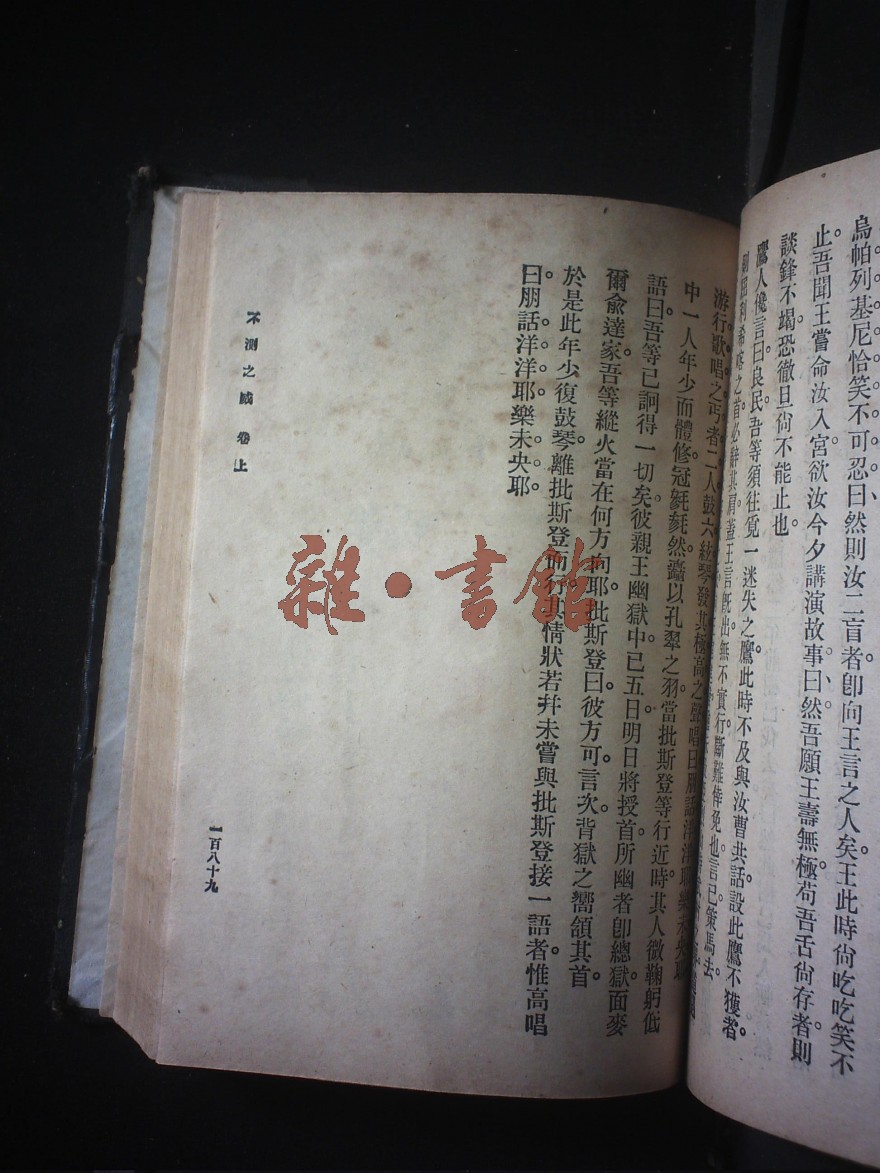 烏帕列基尼恰笑不可忍曰然則汝二盲者卽向王言之人矣王此時尙吃吃笑不
止。吾聞王嘗命汝入宮欲汝今夕講演故事曰然吾願王壽無極苟吾舌尙存者則
談鋒不竭恐徹旦尙不能止也
鷹人儳言曰良民吾等須往覓一迷失之鷹此時不及與汝曹共話設此鷹不獲者。
利希喀之首必辭其肩蓋王言旣出無不實行斷難倖免也言已策馬去。
游行歌唱之丐者二人鼓六絃琴發其極高之聲唱曰朋話洋洋耶樂未央耶
中一人年少而體修冠毿毿然纛以孔翠之羽當批斯登等行近時其人微鞠躬低
語曰吾等已詗得一切矣彼親王幽獄中已五日明日將授首所幽者卽總獄面麥
爾俞達家吾等縱火當在何方向耶批斯登曰彼方可言次背獄之嚮頷其首。
於是此年少復鼓琴離批斯登而行其情狀若幷未嘗與批斯登接一語者惟高唱
曰朋話洋洋耶樂未央耶。
不測之威 卷上
一百八十九
雜·書館